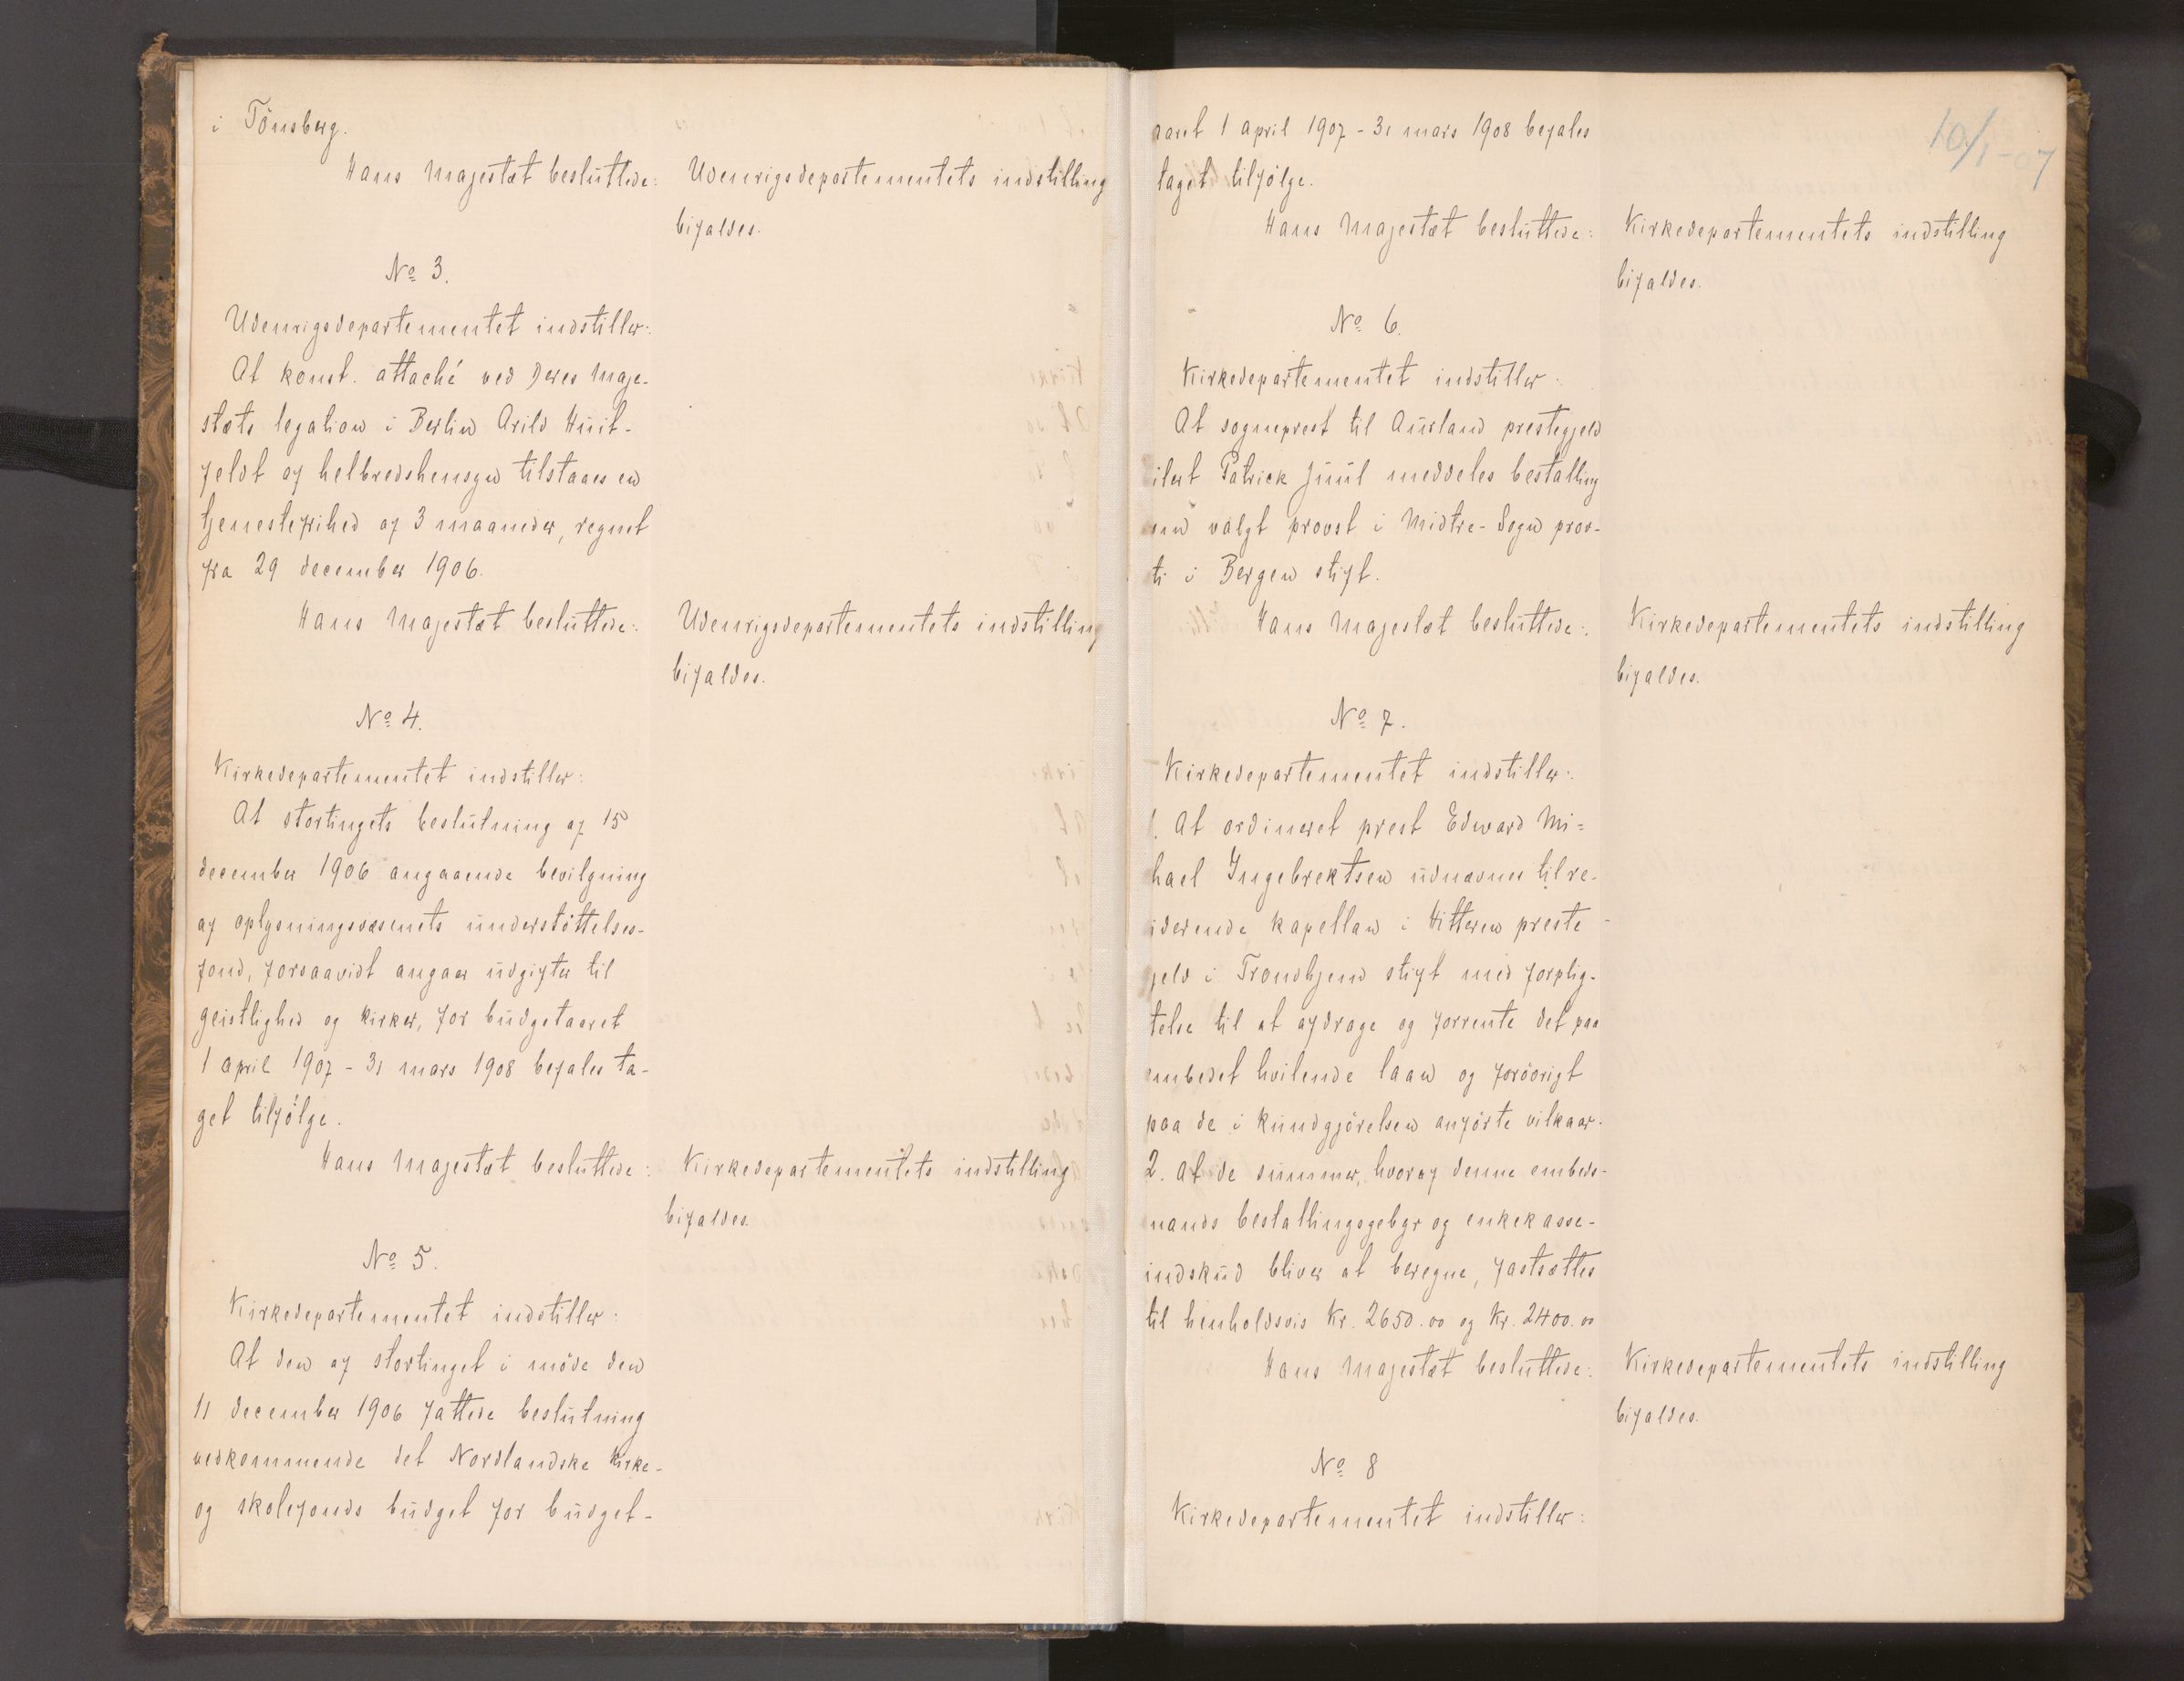 i Tönsberg.
Hans Majestæt besluttede:
Udenrigsdepartementets indstilling
bifaldes.
No 3.
Udenrigsdepartementet indstiller:
At konst. attaché ved Deres Maje-
stæts legation i Berlin Arild Huit-
feldt af helbredshensyn tilstaaes en
tjenestefrihed af 3 maaneder, regnet
fra 29 december 1906.
Hans Majestæt besluttede:
Udenrigsdepartementets indstilling
bifaldes.
No 4.
Kirkedepartementet indstiller:
At stortingets beslutning af 15
december 1906 angaaende bevilgning
af oplysningsvæsenets understöttelses-
fond, forsaavidt angaar udgifter til
geistlighed og kirker, for budgetaaret
1 april 1907 - 31 mars 1908 befales ta-
get tilfölge.
Hans Majestæt besluttede:
Kirkedepartementets indstilling
bifaldes.
No 5.
Kirkedepartementet indstiller:
At den af stortinget i möde den
11 december 1906 fattede beslutning
vedkommende det Nordlandske Kirke-
og skolefonds budget for budget-
10/1-07
aaret 1 april 1907 - 31 mars 1908 befales
taget tilfölge.
Hans Majestæt besluttede:
Kirkedepartementets indstilling
bifaldes.
No 6.
Kirkedepartementet indstiller:
At sogneprest til Aurland prestegjeld
ilert Patrick Juul meddeles bestalling
om valgt provst i Midtre-Sogn prov-
ti i Bergen stift.
Hans Majestæt besluttede:
Kirkedepartementets indstilling
bifaldes.
No 7.
Kirkedepartementet indstiller:
1. At ordineret prest Edward Mi=
hael Ingebrektsen udnævnes til re-
iderende kapellan i Hitteren preste-
jeld i Trondhjem stift med forplig-
telse til at afdrage og forrente det paa
embedet hvilende laan og forövrigt
paa de i kundgjörelsen anförte vilkaar.
2. At de summer, hvoraf denne embeds-
mands bestallingsgebyr og enkekasse-
indskud bliver at beregne, fastsættes
til henholdsvis Kr. 2650.00 og Kr. 2400.00
Hans Majestæt besluttede:
Kirkedepartementets indstilling
bifaldes.
No 8
Kirkedepartementet indstiller: